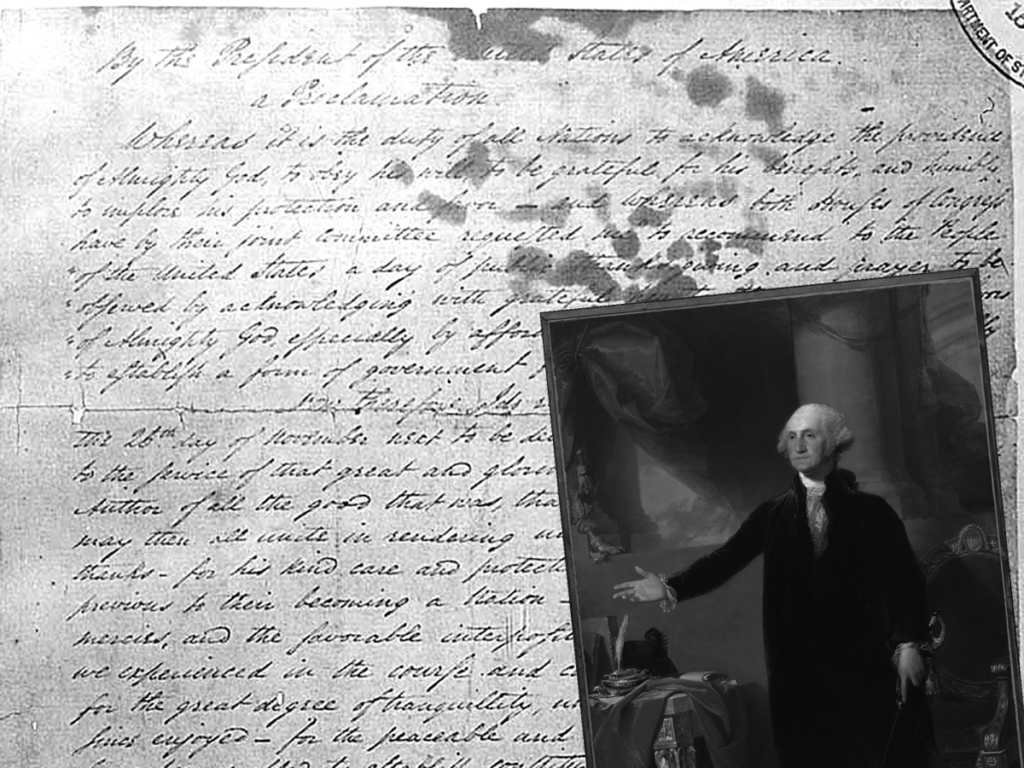 ARTMENT OF ST
10
By the President of the States of America.
a Proclamation.
Whereas it is the duty of all Nations to acknowledge the providence
of Almighty God, to obey his will, to be grateful for his benefits, and humbly
to implore his protection and favor – and whereas both Houses of Congress
have by their joint Committee requested me to recommend to the People
of the United States a day of public thanksgiving and prayer to be
observed by acknowledging with grateful
of Almighty God especially by affor
to establish a form of government
Now therefore I do
the 26th day of November next to be de
to the service of that great and glori
Author of all the good that was, tha
may then all unite in rendering un
thanks – for his kind care and protecti
previous to their becoming a Nation –
mercies, and the favorable interpositi
we experienced in the course and c
for the great degree of tranquillity, un
since enjoyed – for the peaceable and
to establish